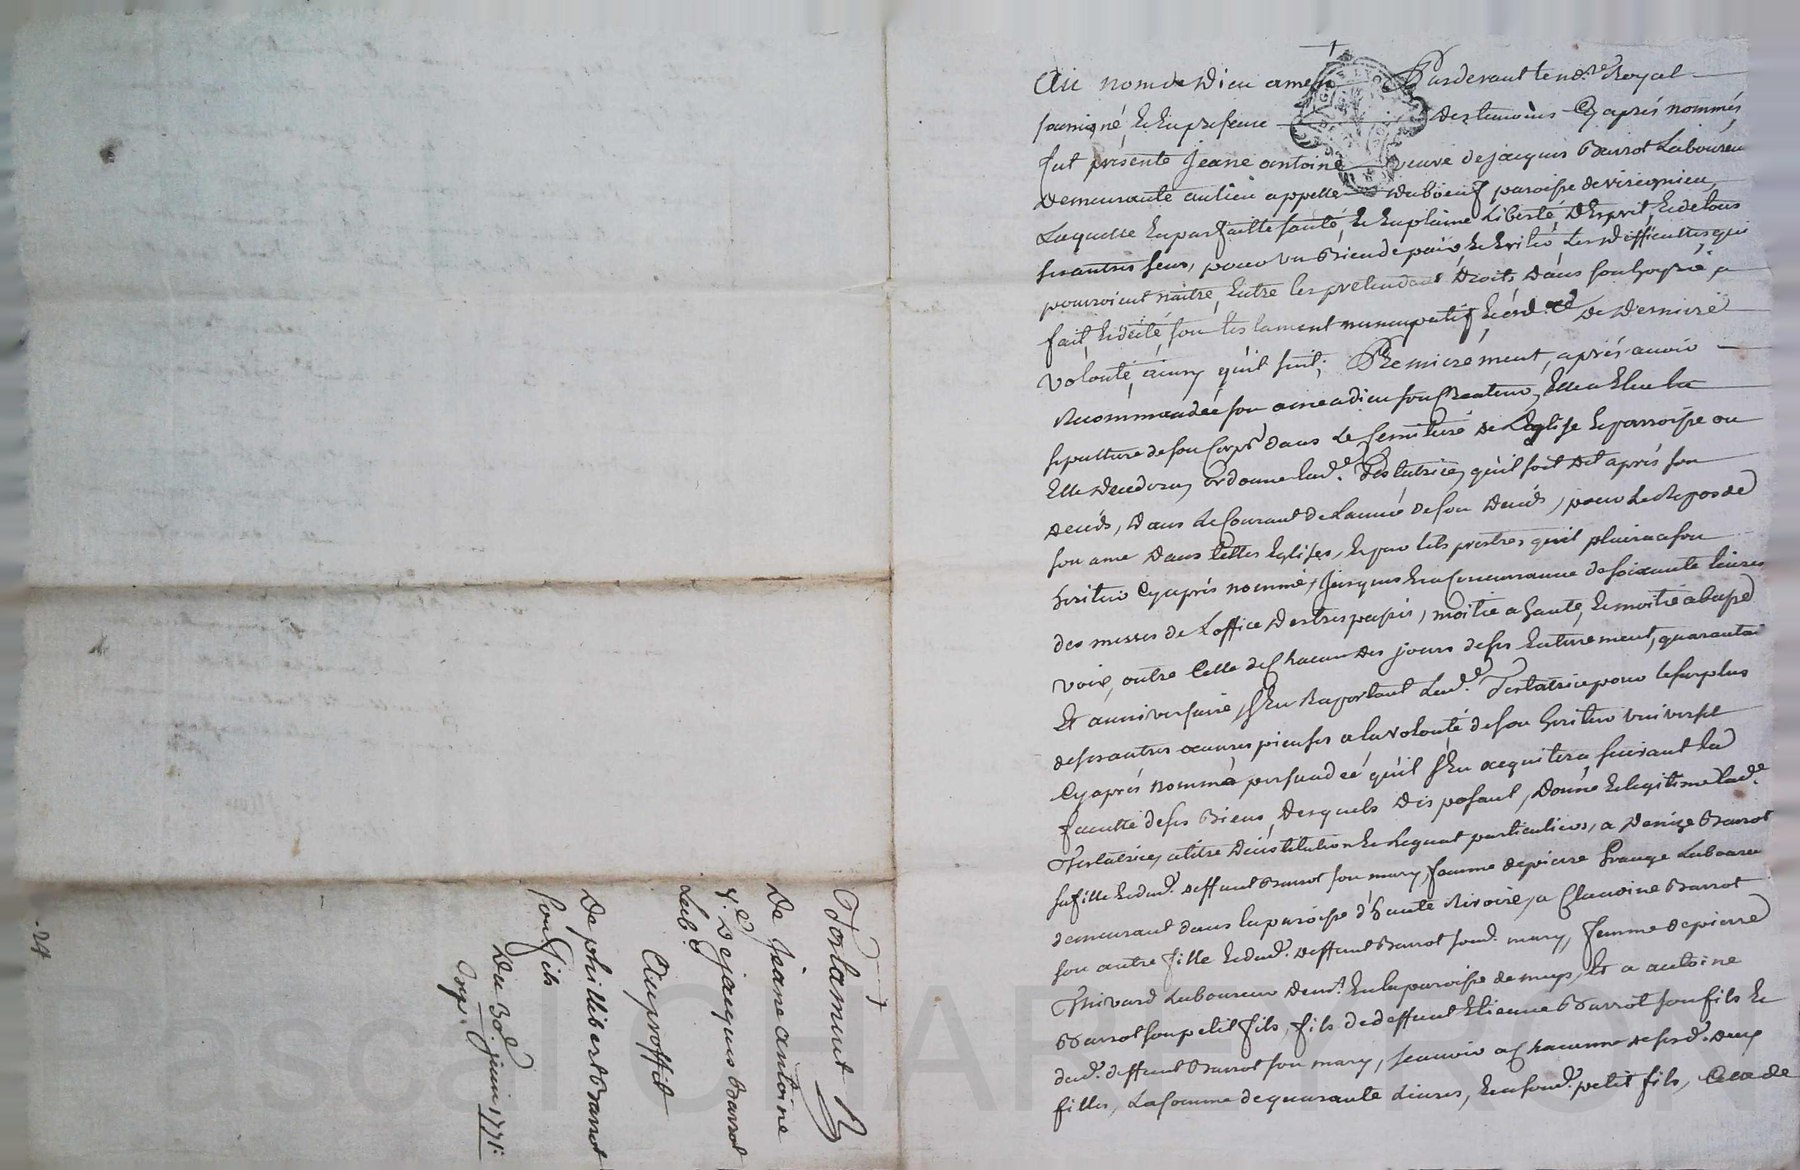 Au nom de Dieu amen Pardevant le no.re Royal
soussigné Et En presence des temoins Cy aprés nommés
fut presente Jeane antoine veuve de jacques Barrot Laboureur
demeurante au lieu appellé duboeuf paroisse de virignieu
Laquelle En parfaitte santé, Et En plaine Liberté, D'Esprit, Et de tous
ses autres sens, pour un Bien de paix, Et Eviter Les difficultes qui
pourroient naitre, Entre les pretendant Droits, dans son hoyrie, a
fait, Et dicté son testament nuncupatif Et ord. de derniere
volonté, ainsy qu'il suit; Premierement, aprés avoir
Recommandée son ame a dieu son Createur, Elle a Elue la
sepulture de son Corps dans Le Semitiere de L'Eglise Et parroisse ou
Elle deceddera, ordonne lad.e Testatrice, qu'il soit dit aprés son
decés, dans Le Courant de L'année de son decés, pour Le Repos de
son ame dans telles Eglises, Et par tels prestres qu'il plaira a son
heritier Cy aprés nommé, jusques En Concurrance de soixante livres
des messes de L'office des trespassés, moitié a haute, Et moitié a basse
voix, outre Celle de Chacun des jours de ses Enterrement, quarantai
Et anniversaire, s'En Raportant Lad.e Testatrice pour le surplus
de ses autres oeuvres pieuses a la volonté de son heritier universel
Cy aprés nommé persuadeé qu'il s'En acquitera suivant la
faculté de ses Biens, desquels disposant, donne Et legitime lad.e
Testatrice, a titre d'institution Et Leguat particuliers, a Denize Barrot
sa fille Et dud. deffunt Barrot son mary, femme de pierre Grange Laboureur
demeurant dans la paroisse d'haute Rivoire, a Claudine Barrot
son autre fille Et dud. deffunt Barrot sond. mary, femme de pierre
Thivard Laboureur demt. En la paroisse de mays, Et a antoine
Barrot son petit fils, fils de deffunt Etienne Barrot son fils Et
dud. deffunt Barrot son mary, sçavoir a Chacunne de sesd. deux
filles, La somme de quarante Livres, Et a sond. petit fils, Celle de
Testament
De Jeane antoine
v.e De jacques Barrot
Lab.r
Au proffit
De phillibert Barrot
son fils
Du 30.e juin 1771:
24
Pascal CHAREYRON